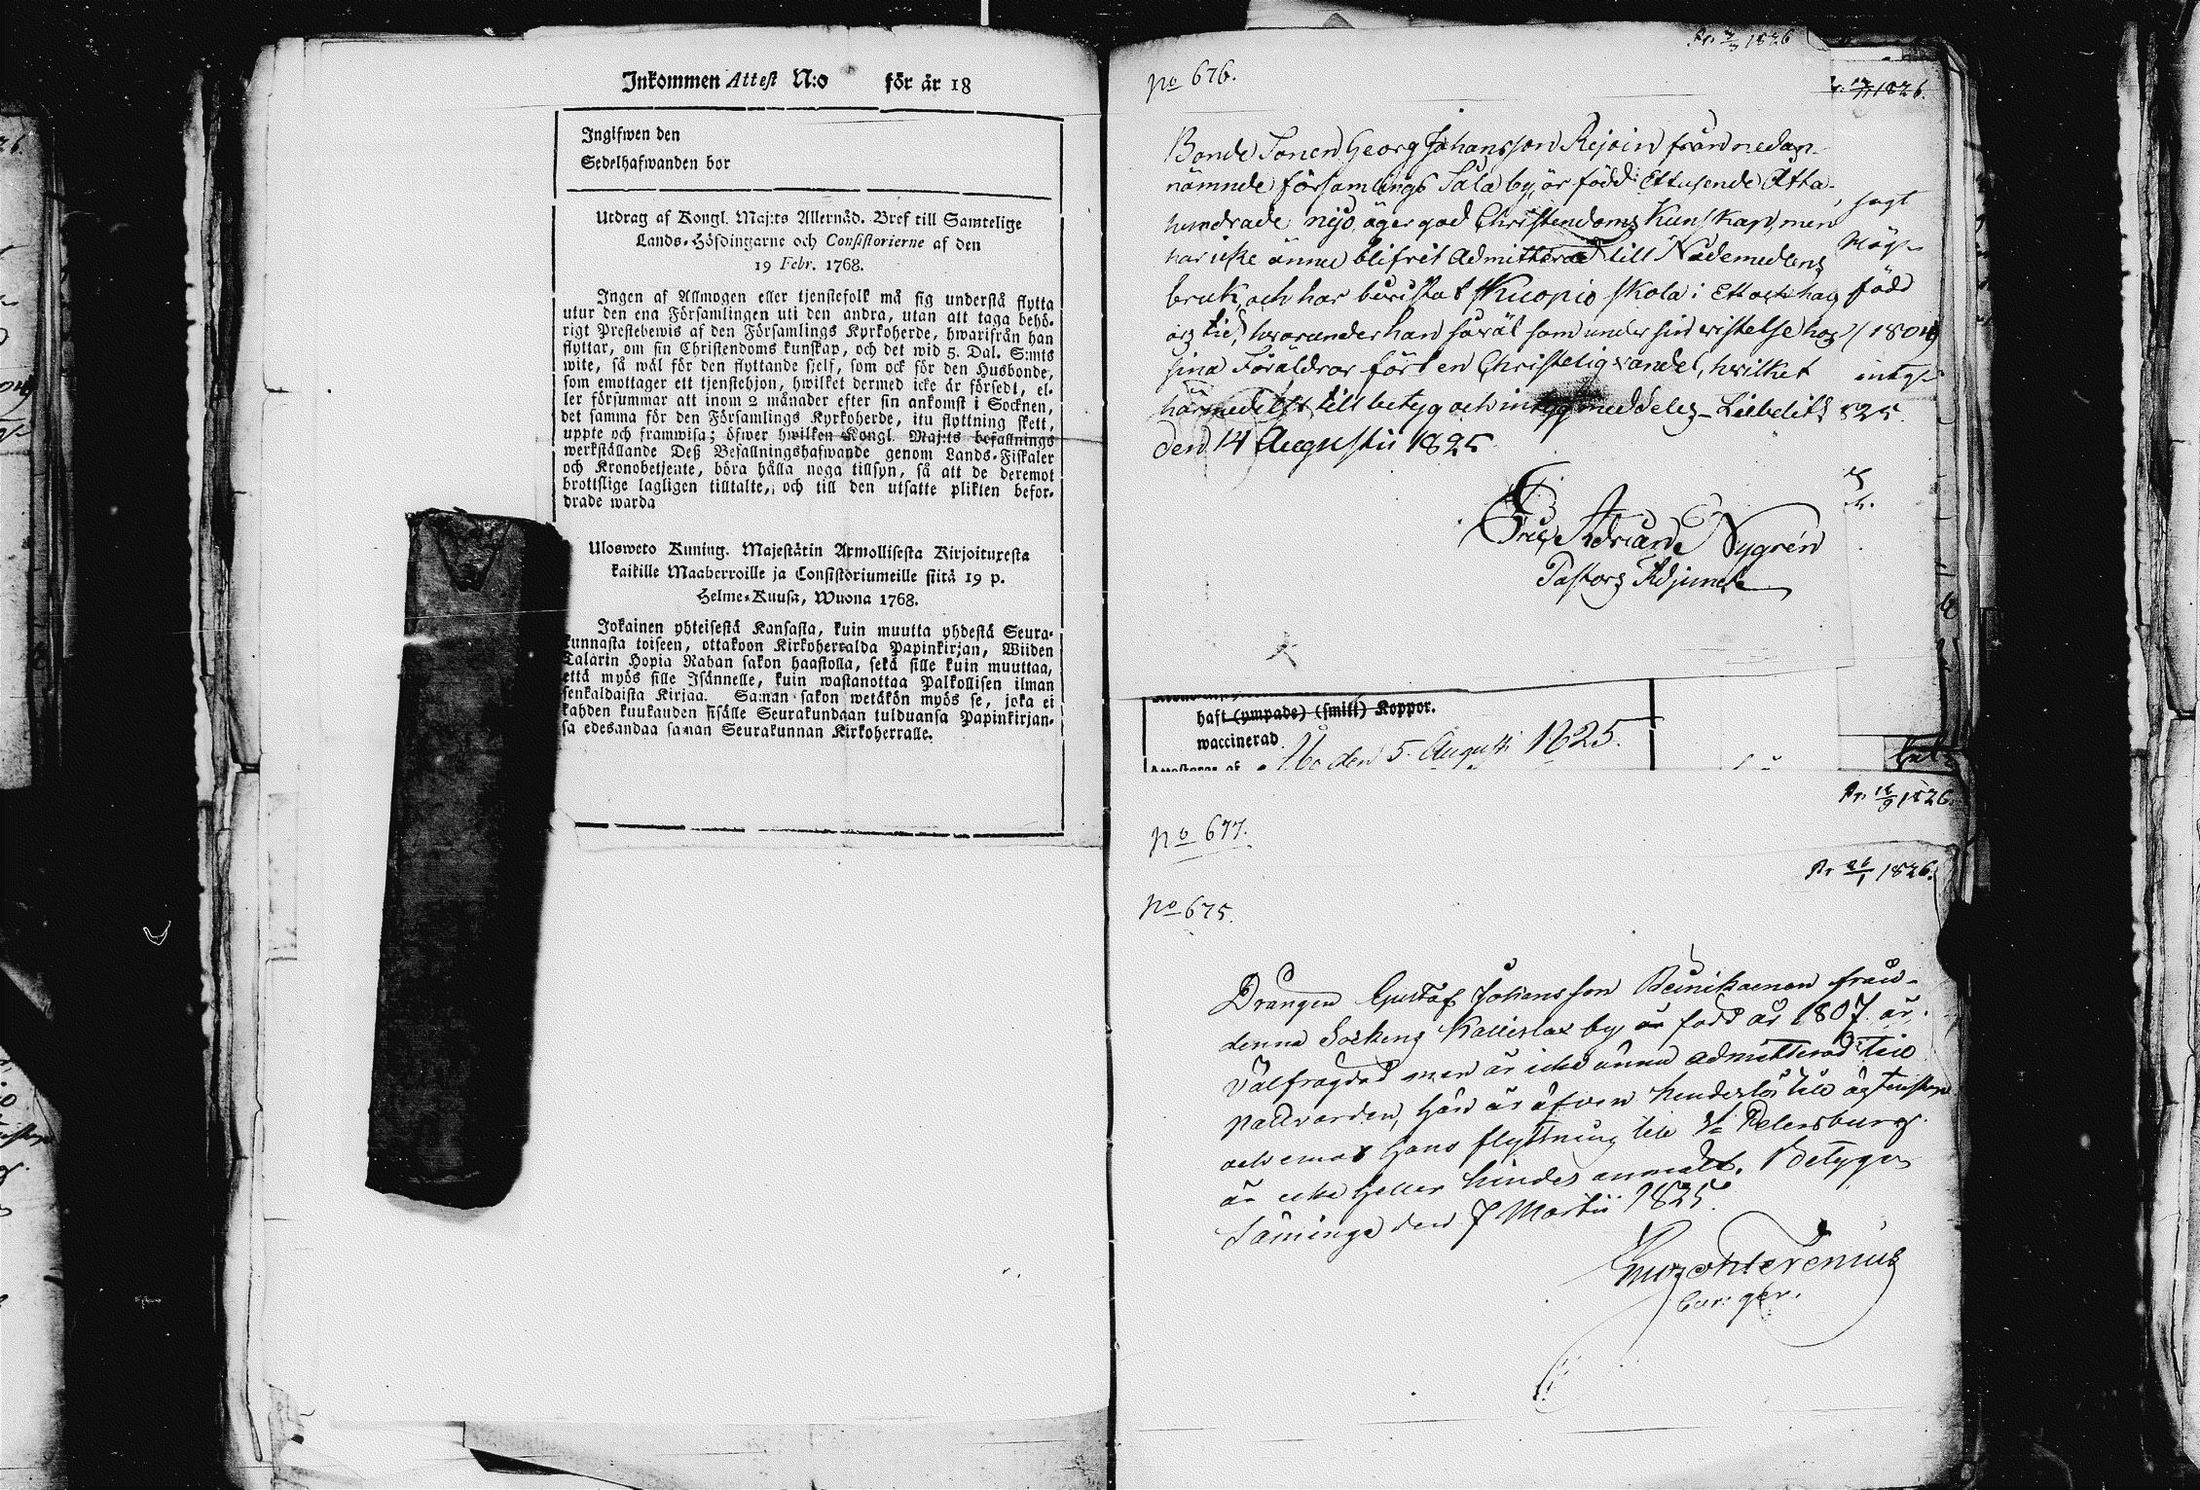 Inkommen Attest N:o för år 18
Ingifwen den
Sedelhafwanden bor
Utdrag af Kongl. Maj:ts Allernåd. Bref till Samtelige
Lands-Höfdingarne och Consistorierne af den
19 Febr. 1768.
Ingen af Allmogen eller tjenstefolk må sig understå flytta
utur den ena Församlingen uti den andra, utan att taga behö-
rigt Prestebewis af den Församlings Kyrkoherde, hwarifrån han
flyttar, om sin Christendoms kunskap, och det wid 5. Dal. S:mts
wite, så wäl för den flyttande sjelf, som ock för den Husbonde,
som emottager ett tjenstehjon, hwilket dermed icke är försedt, el-
ler försummar att inom 2 månader efter sin ankomst i Socknen,
det samma för den Församlings Kyrkoherde, itu flyttning skett,
uppte och framwisa; öfwer hwilken Kongl. Maj:ts befallnings
werkställande Deß Befallningshafwande genom Lands-Fiskaler
och Kronobetjente, böra hålla noga tillsyn, så att de deremot
brottslige lagligen tilltalte, och till den utsatte plikten befor-
drade warda
Ulosweto Kuning. Majestätin Armollisesta Kirjoituxesta
kaikille Maaherroille ja Consistoriumeille siitä 19 p.
Helme-Kuusa, Wuona 1768.
Jokainen yhteisestä Kansasta, kuin muutta yhdestä Seura-
kunnasta toiseen, ottakoon Kirkoherralda Papinkirjan, Wiiden
Talarin Hopia Rahan sakon haastolla, sekä sille kuin muuttaa,
että myös sille Isännelle, kuin wastanottaa Palkollisen ilman
senkaldaista Kirjaa. Saman sakon wetäkön myös se, joka ei
kahden kuukauden sisälle Seurakundaan tulduansa Papinkirjan-
sa edesandaa saman Seurakunnan Kirkoherralle.
No 676.
Bonde Sonen Georg Johansson Rejoin från nedan-
nämnde församlings Sala by, är född: Ettusende Åtta-
hundrade nijo, äger god Christendoms Kunskap, men
har icke ännu blifvit Admitterad till Nådemedlens
bruk, och har bevistat Kuopio skola i Ett och halft
års tid, hvarunder han såväl som under sin vistelse hos
sina Föräldrar fört en Christelig vandel, hvilket
härmedelst till betyg och intyg meddelas. Liebelitz
den 14 Augustii 1825
Eric Adrian Nygrén
Pastors Adjunct
född
1804
825
haft (ympade) (smitt) Koppor.
waccinerad
Åbo den 5 Augusti 1825.
Pr. 16/9 1826.
No 677.
Pr 26/1 1826.
No 675.
Drängen Gustaf Johansson Reinikainen från
denna Sockens Kallislax by, är född år 1807. är
välfrägdad men är icke ännu admitterad till
nattvarden, han är äfven hinderlös till ägtenskap
och emot hans flyttning till St Petersburg
är icke heller hinder anmält. Betygar
Säminge den 7 Martii 1825.